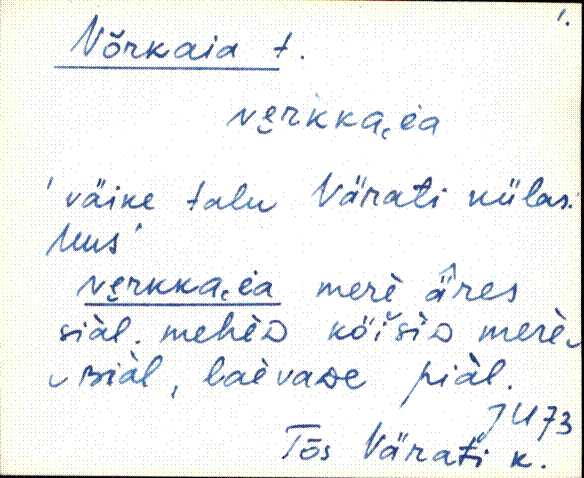 1.
Nõrkaia t.
ne̮rkka,èa
'väike talu Värati külas.
Uus'
ne̮rkka,èa merè äres
siàl. mehèᴅ köi̭siᴅ merè
piàl, laèvaᴅe piàl.
JU 73
Tõs Värati k.